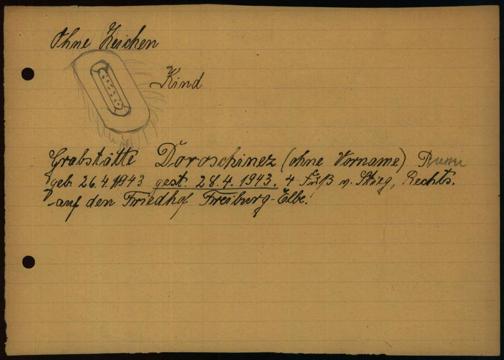 Ohne Zeichen
Kind
Grabstätte Doroschinez (ohne Vorname)
geb. 26.4.1943 gest. 28.4.1943. 4 Fuß v. Steg, Rechts.
auf den Friedhof Freiburg-Elbe.